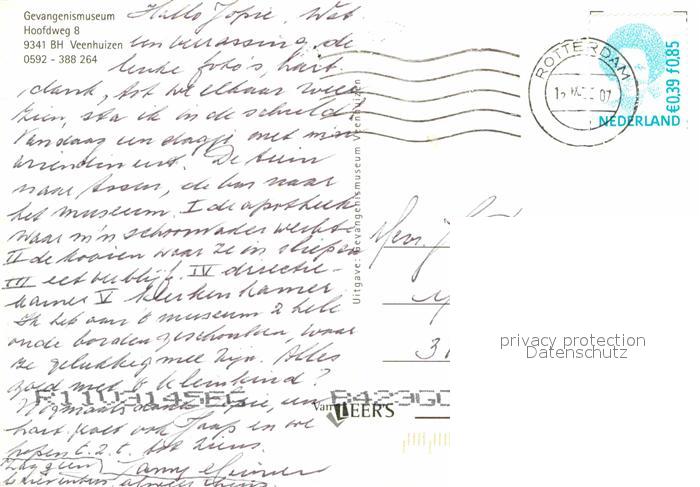 Gevangenismuseum
Hoofdweg 8
9341 BH Veenhuizen
0592 - 388 264
Hallo Jopie, Wat
een verrassing, de
leuke foto's, hart.
dank,
zien, sta ik in de schuld!
Vandaag een dagje met mijn
vriendin uit. De trein
naar Assen, de bus naar
het museum. I de apotheek
waar m'n schoonvader werkte
II de kooien waar ze in sliepen
III eet verblijf. IV directie-
kamer V klerken kamer
Ik heb aan 't museum 2 hele
oude borden geschonken, waar
ze gelukkig mee zijn. Alles
goed met je kleinkind?
Nogmaals dank Jopie, een
hart. groet ook Jaap en we
hopen t.z.t. tot ziens.
Uitgave: Gevangenismuseum Veenhuizen
ROTTERDAM
07
€0,39 f0,85
NEDERLAND
Mevr. J
3
privacy protection
Datenschutz
van LEER'S